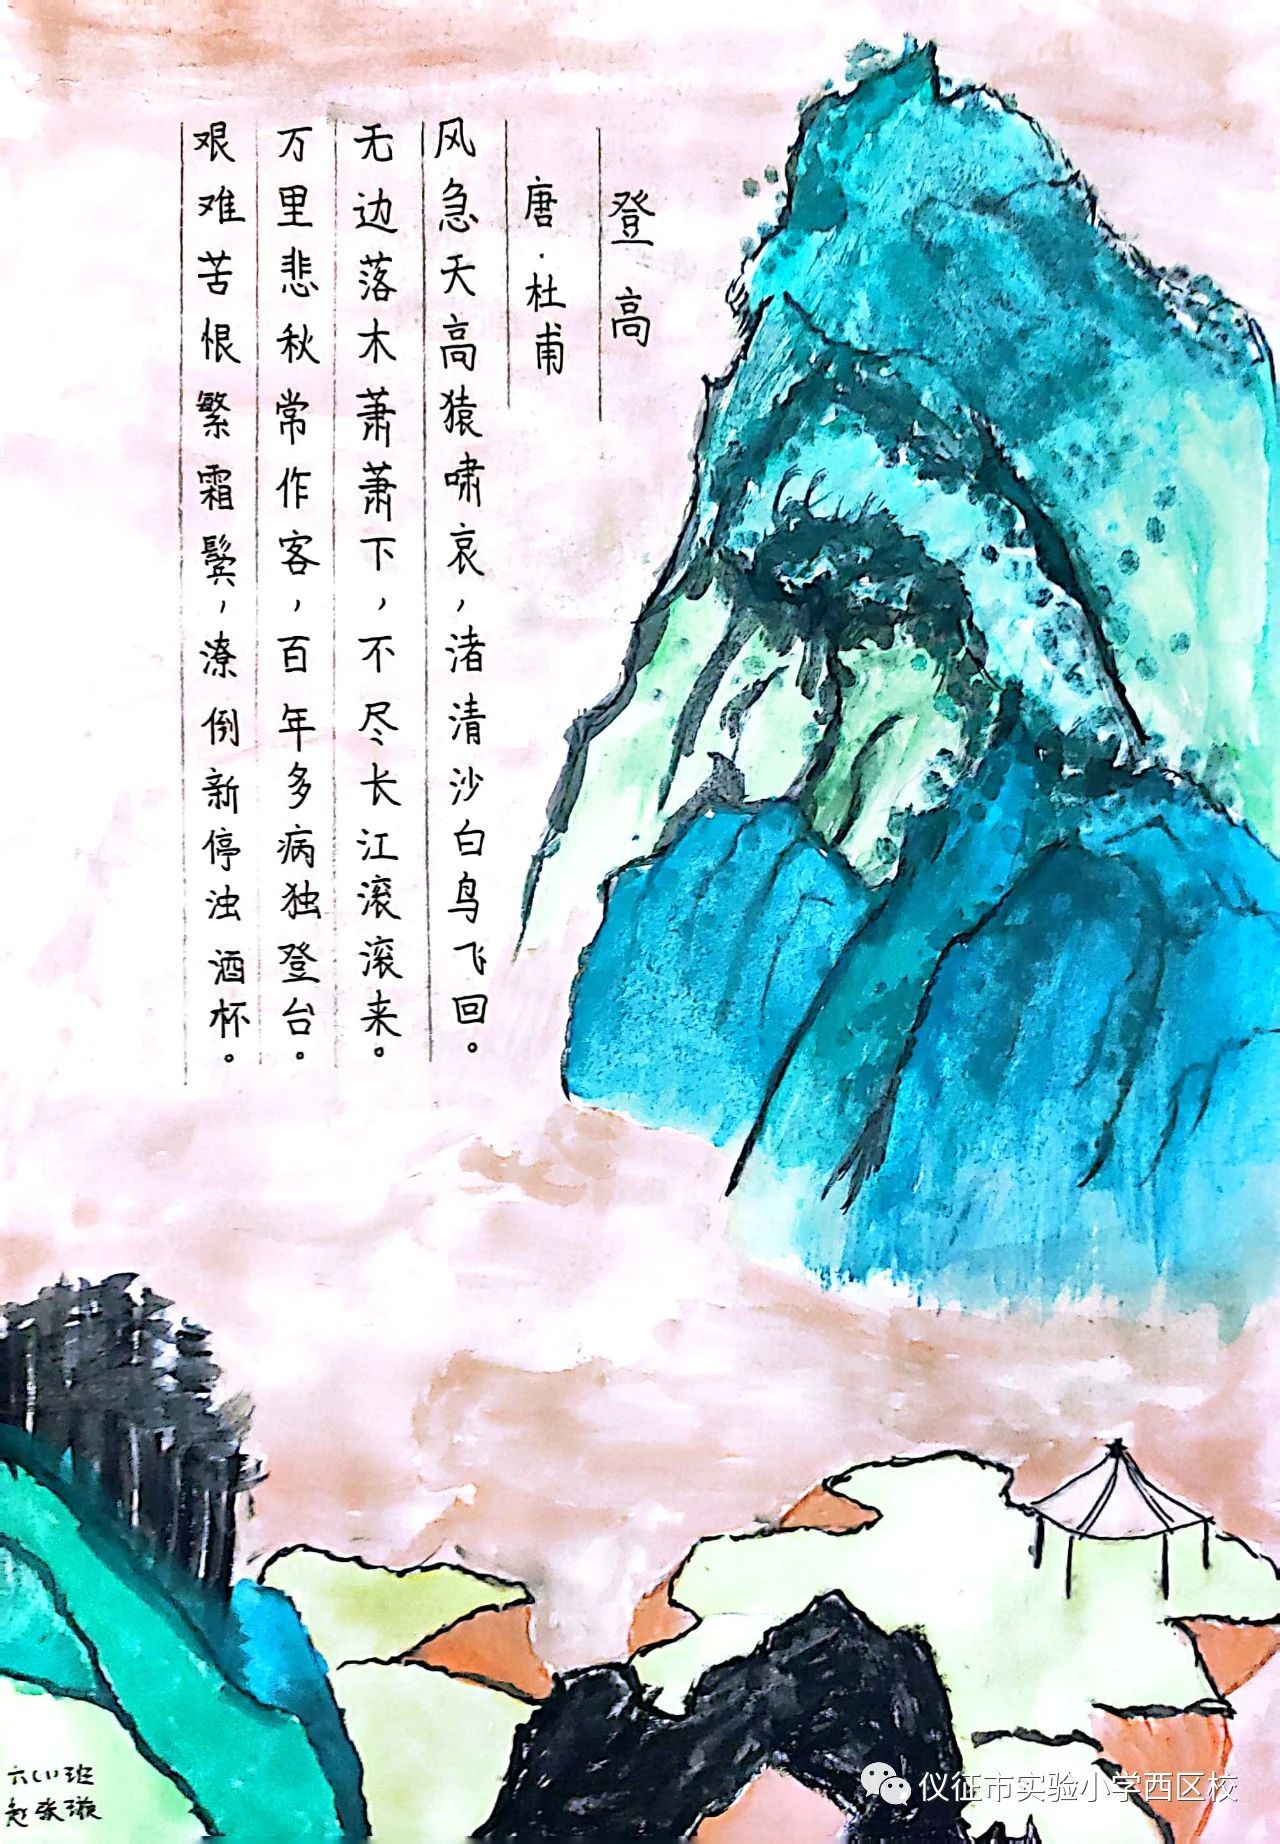 登高
唐·杜甫
风急天高猿啸哀，渚清沙白鸟飞回。
无边落木萧萧下，不尽长江滚滚来。
万里悲秋常作客，百年多病独登台。
艰难苦恨繁霜鬓，潦倒新停浊酒杯。
六(1)班
赵张璇
仪征市实验小学西区校